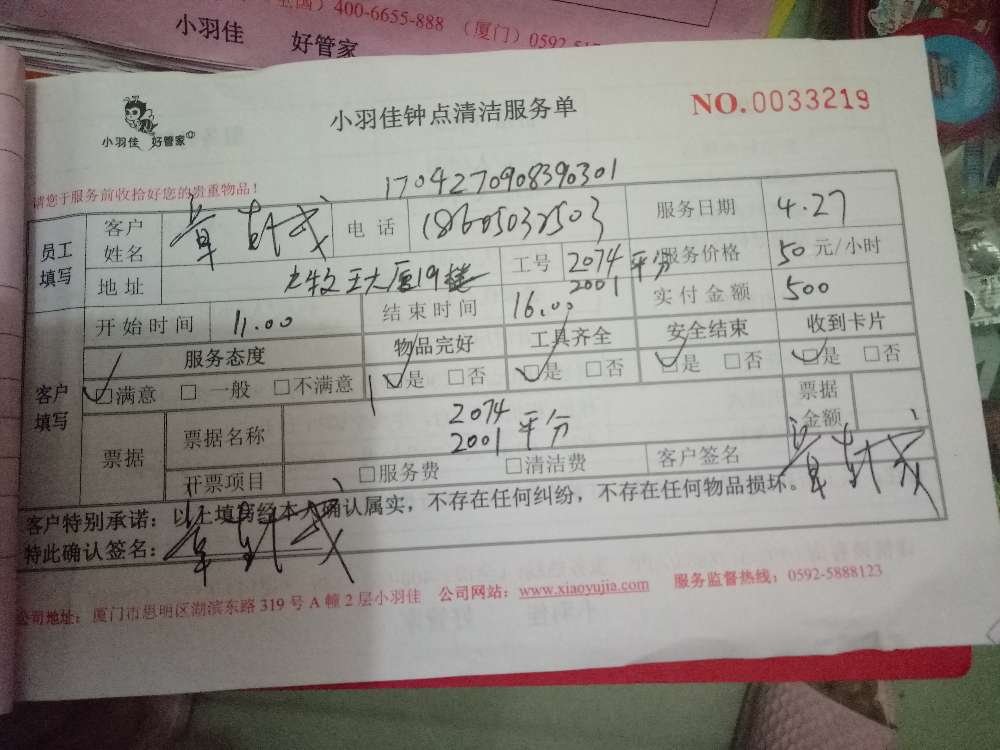 全国）400-6655-888 （厦门）0592-517
小羽佳 好管家
小羽佳 好管家
小羽佳钟点清洁服务单
NO.0033219
请您于服务前收拾好您的贵重物品！
170427090839030​1
员工填写 客户姓名 电话 18605032503 服务日期 4.27
地址 大厦19楼 工号 2074 2001 平分 服务价格 50 元/小时
开始时间 11.00 结束时间 16.00 实付金额 500
客户填写 服务态度 物品完好 工具齐全 安全结束 收到卡片
☑满意 □一般 □不满意 ☑是 □否 ☑是 □否 ☑是 □否 ☑是 □否
票据 票据名称 2074 2001 平分 票据金额
开票项目 □服务费 □清洁费 客户签名
客户特别承诺：以上填写经本人确认属实，不存在任何纠纷，不存在任何物品损坏。
特此确认签名：
公司地址：厦门市思明区湖滨东路 319 号 A 幢 2 层小羽佳 公司网站：www.xiaoyujia.com 服务监督热线：0592-5888123